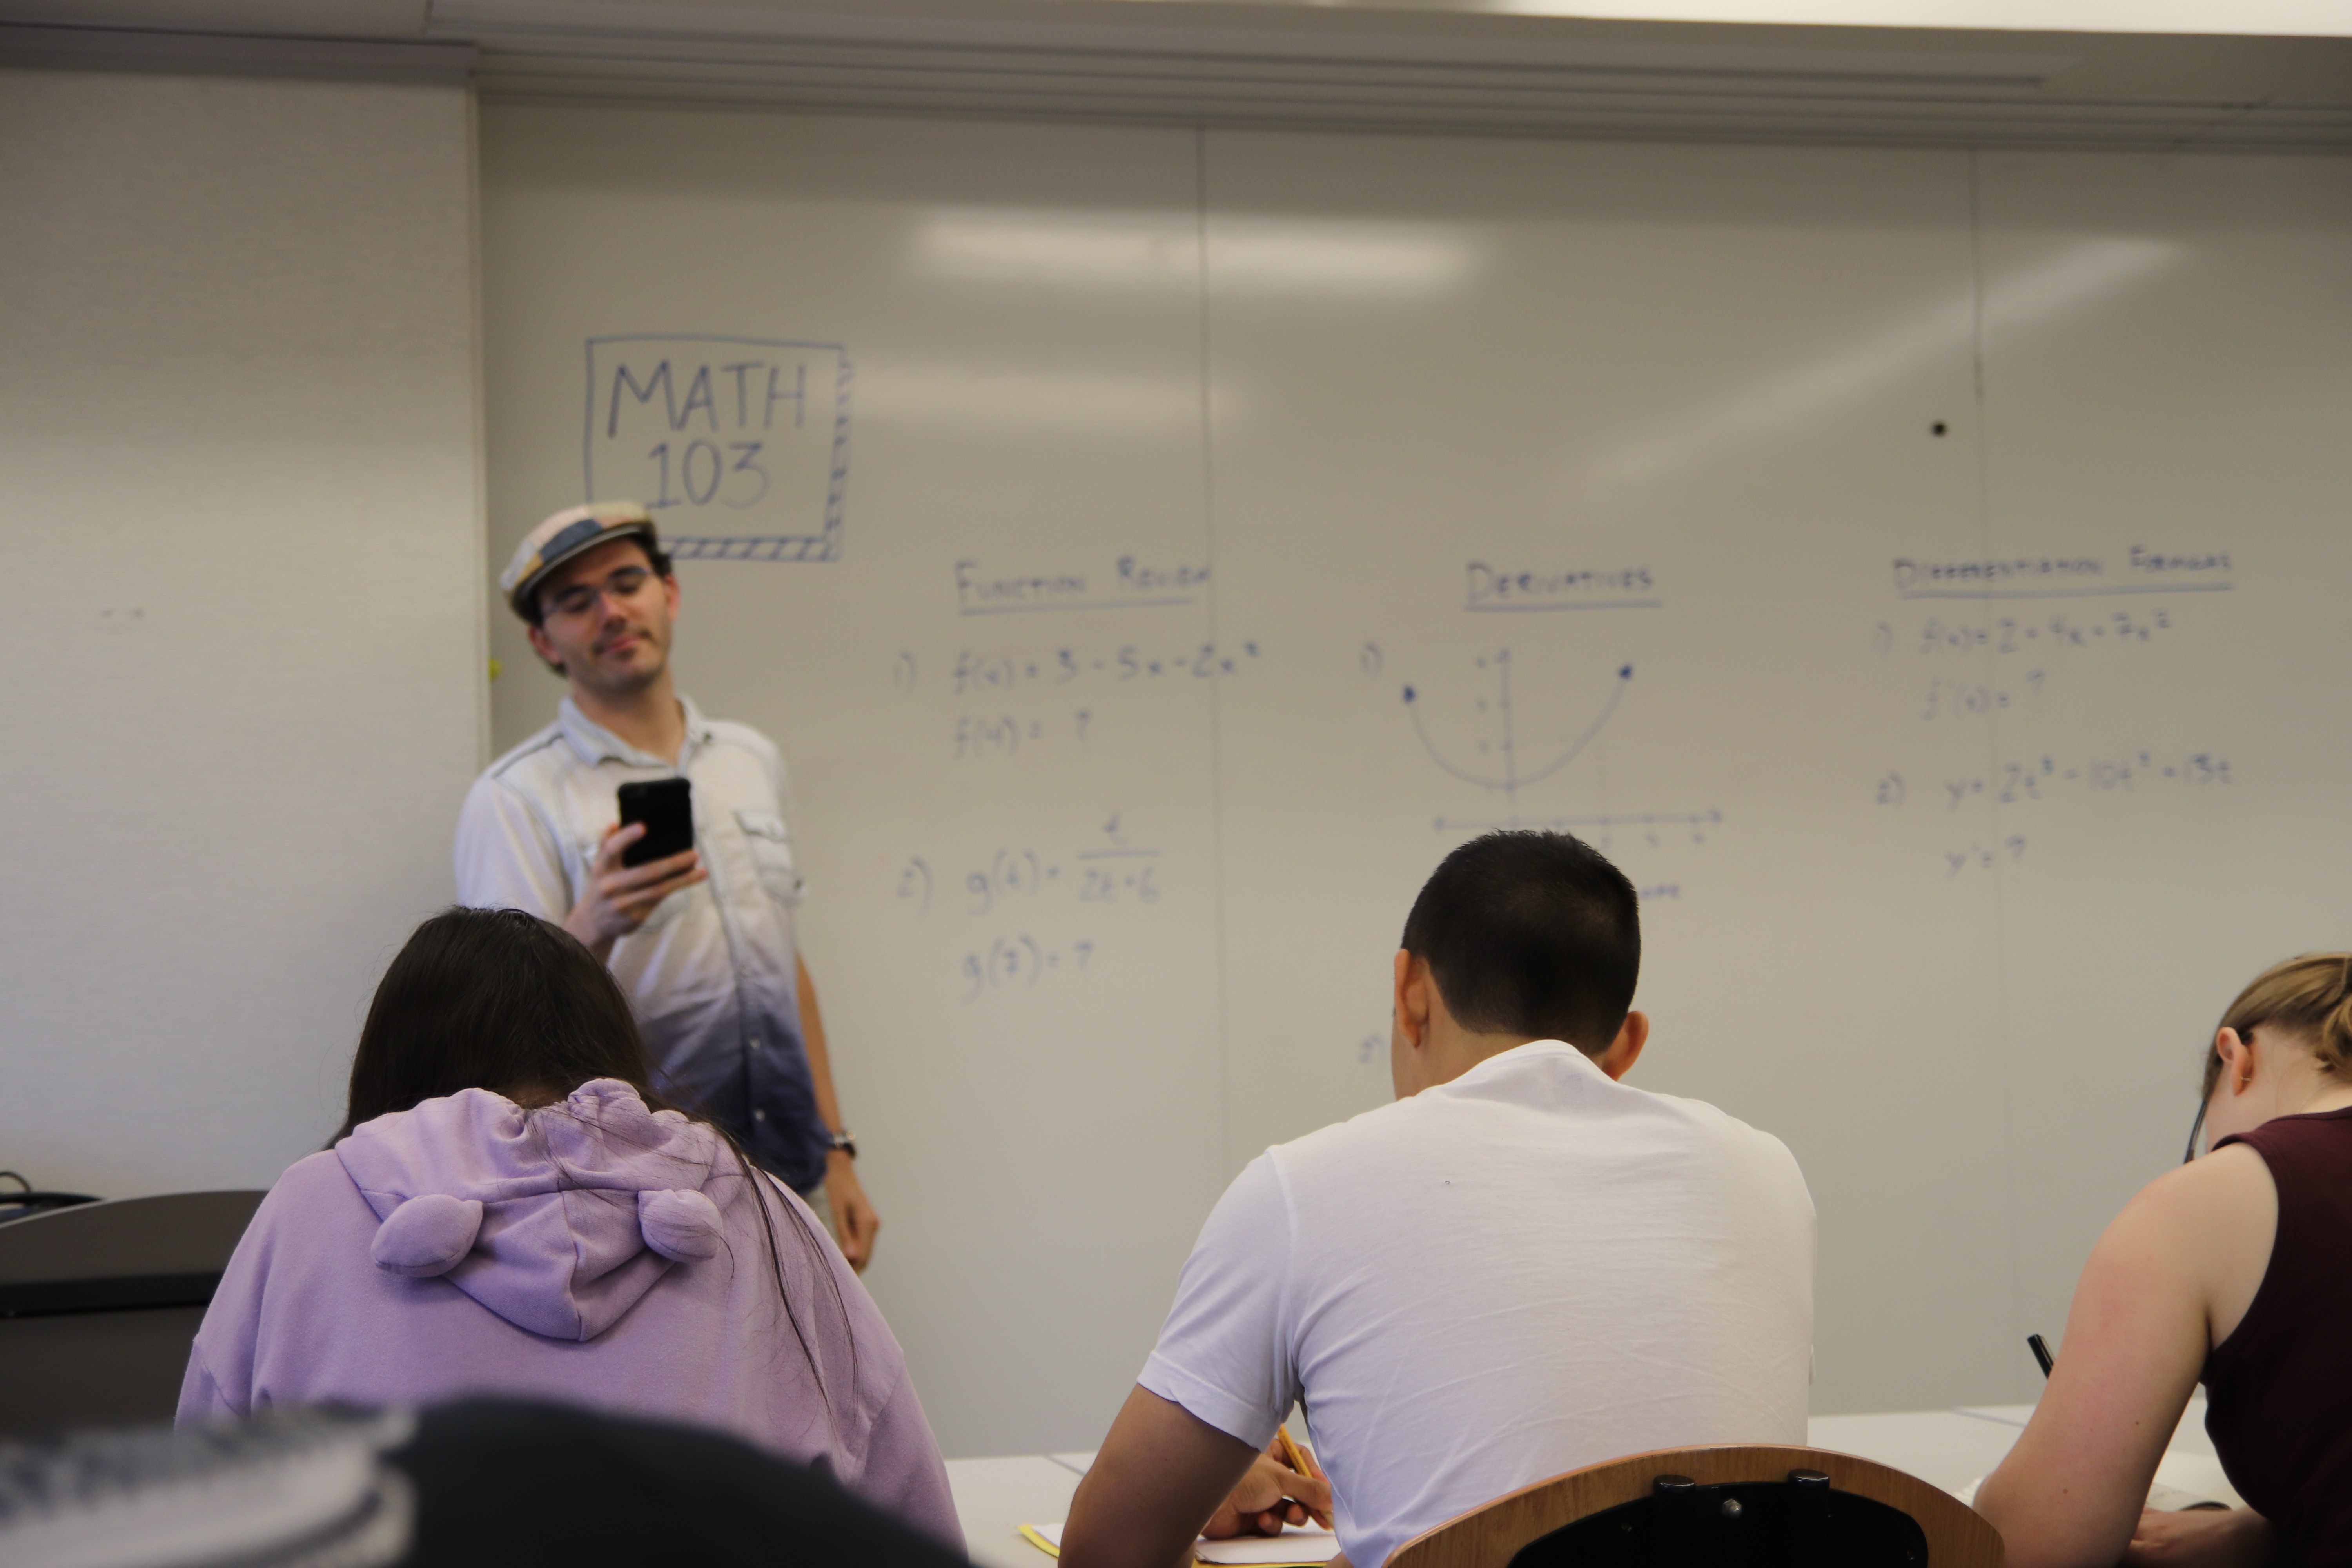 MATH
103
FUNCTION REVIEW
1) f(x) = 3 - 5x - 2x²
f(4) = ?
2) g(t) = t / 2t + 6
g(7) = ?
DERIVATIVES
1)
2)
DIFFERENTIATION FORMULAS
1)
f'(x) = ?
2) y = 2t³ - 10t² - 13t
y' = ?